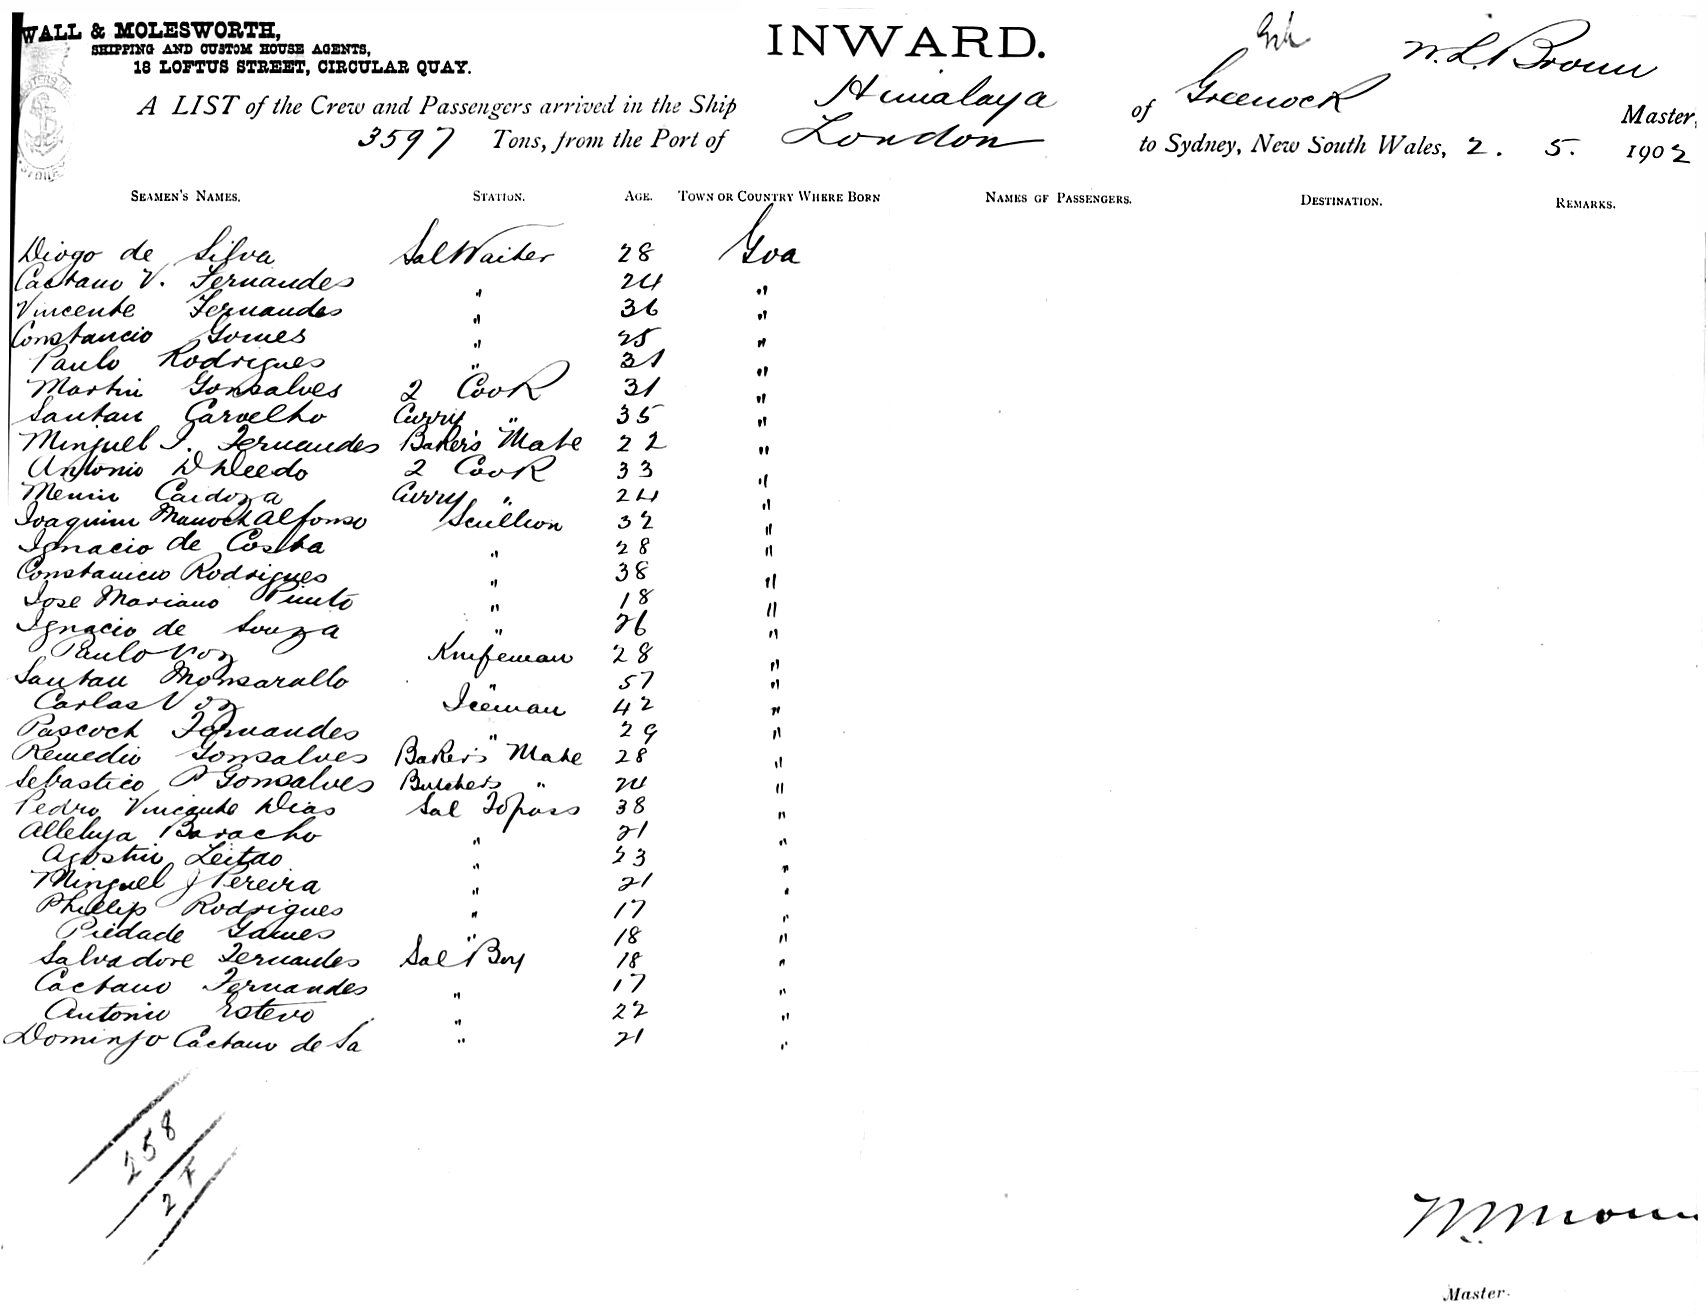 WALL & MOLESWORTH,
SHIPPING AND CUSTOM HOUSE AGENTS,
18 LOFTUS STREET, CIRCULAR QUAY.
INWARD.
A LIST of the Crew and Passengers arrived in the Ship Himalaya of Greenock W. L. Brown Master,
3597 Tons, from the Port of London to Sydney, New South Wales, 2. 5. 1902
SEAMEN'S NAMES. STATION. AGE. TOWN OR COUNTRY WHERE BORN NAMES OF PASSENGERS. DESTINATION. REMARKS.
Diogo de Silva Sal Waiter 28 Goa
Caetano V. Fernandes " 24 "
Vincente Fernandes " 36 "
Constancio Gomes " 25 "
Paulo Rodrigues " 31 "
Martin Gonsalves 2 Cook 31 "
Santan Carvelho Curry " 35 "
Minguel I. Fernandes Baker's Mate 22 "
Antonio 2 Cook 33 "
Menin Cardoza Curry " 24 "
Joaquim Alfonso Scullion 32 "
Ignacio de Costa " 28 "
Constanicio Rodrigues " 38 "
Jose Mariano Pinto " 18 "
Ignacio de Souza " 26 "
Paulo Voz Knifeman 28 "
Santan Monsarallo " 57 "
Carlas Voz Iceman 42 "
Pascoch Fernandes " 29 "
Remedio Gonsalves Baker's Mate 28 "
Sebastico P Gonsalves Butchers " 24 "
Pedro Vincente Dias Sal Topass 38 "
Alleluja Baracho " 21 "
Agostin Leitao " 23 "
Minguel J Pereira " 21 "
Phillip Rodrigues " 17 "
Piedade Gomes " 18 "
Salvadore Fernandes Sal Boy 18 "
Caetano Fernandes " 17 "
Antonio Estevo " 22 "
Domingo Caetano de Sa " 21 "
258
2
Master.